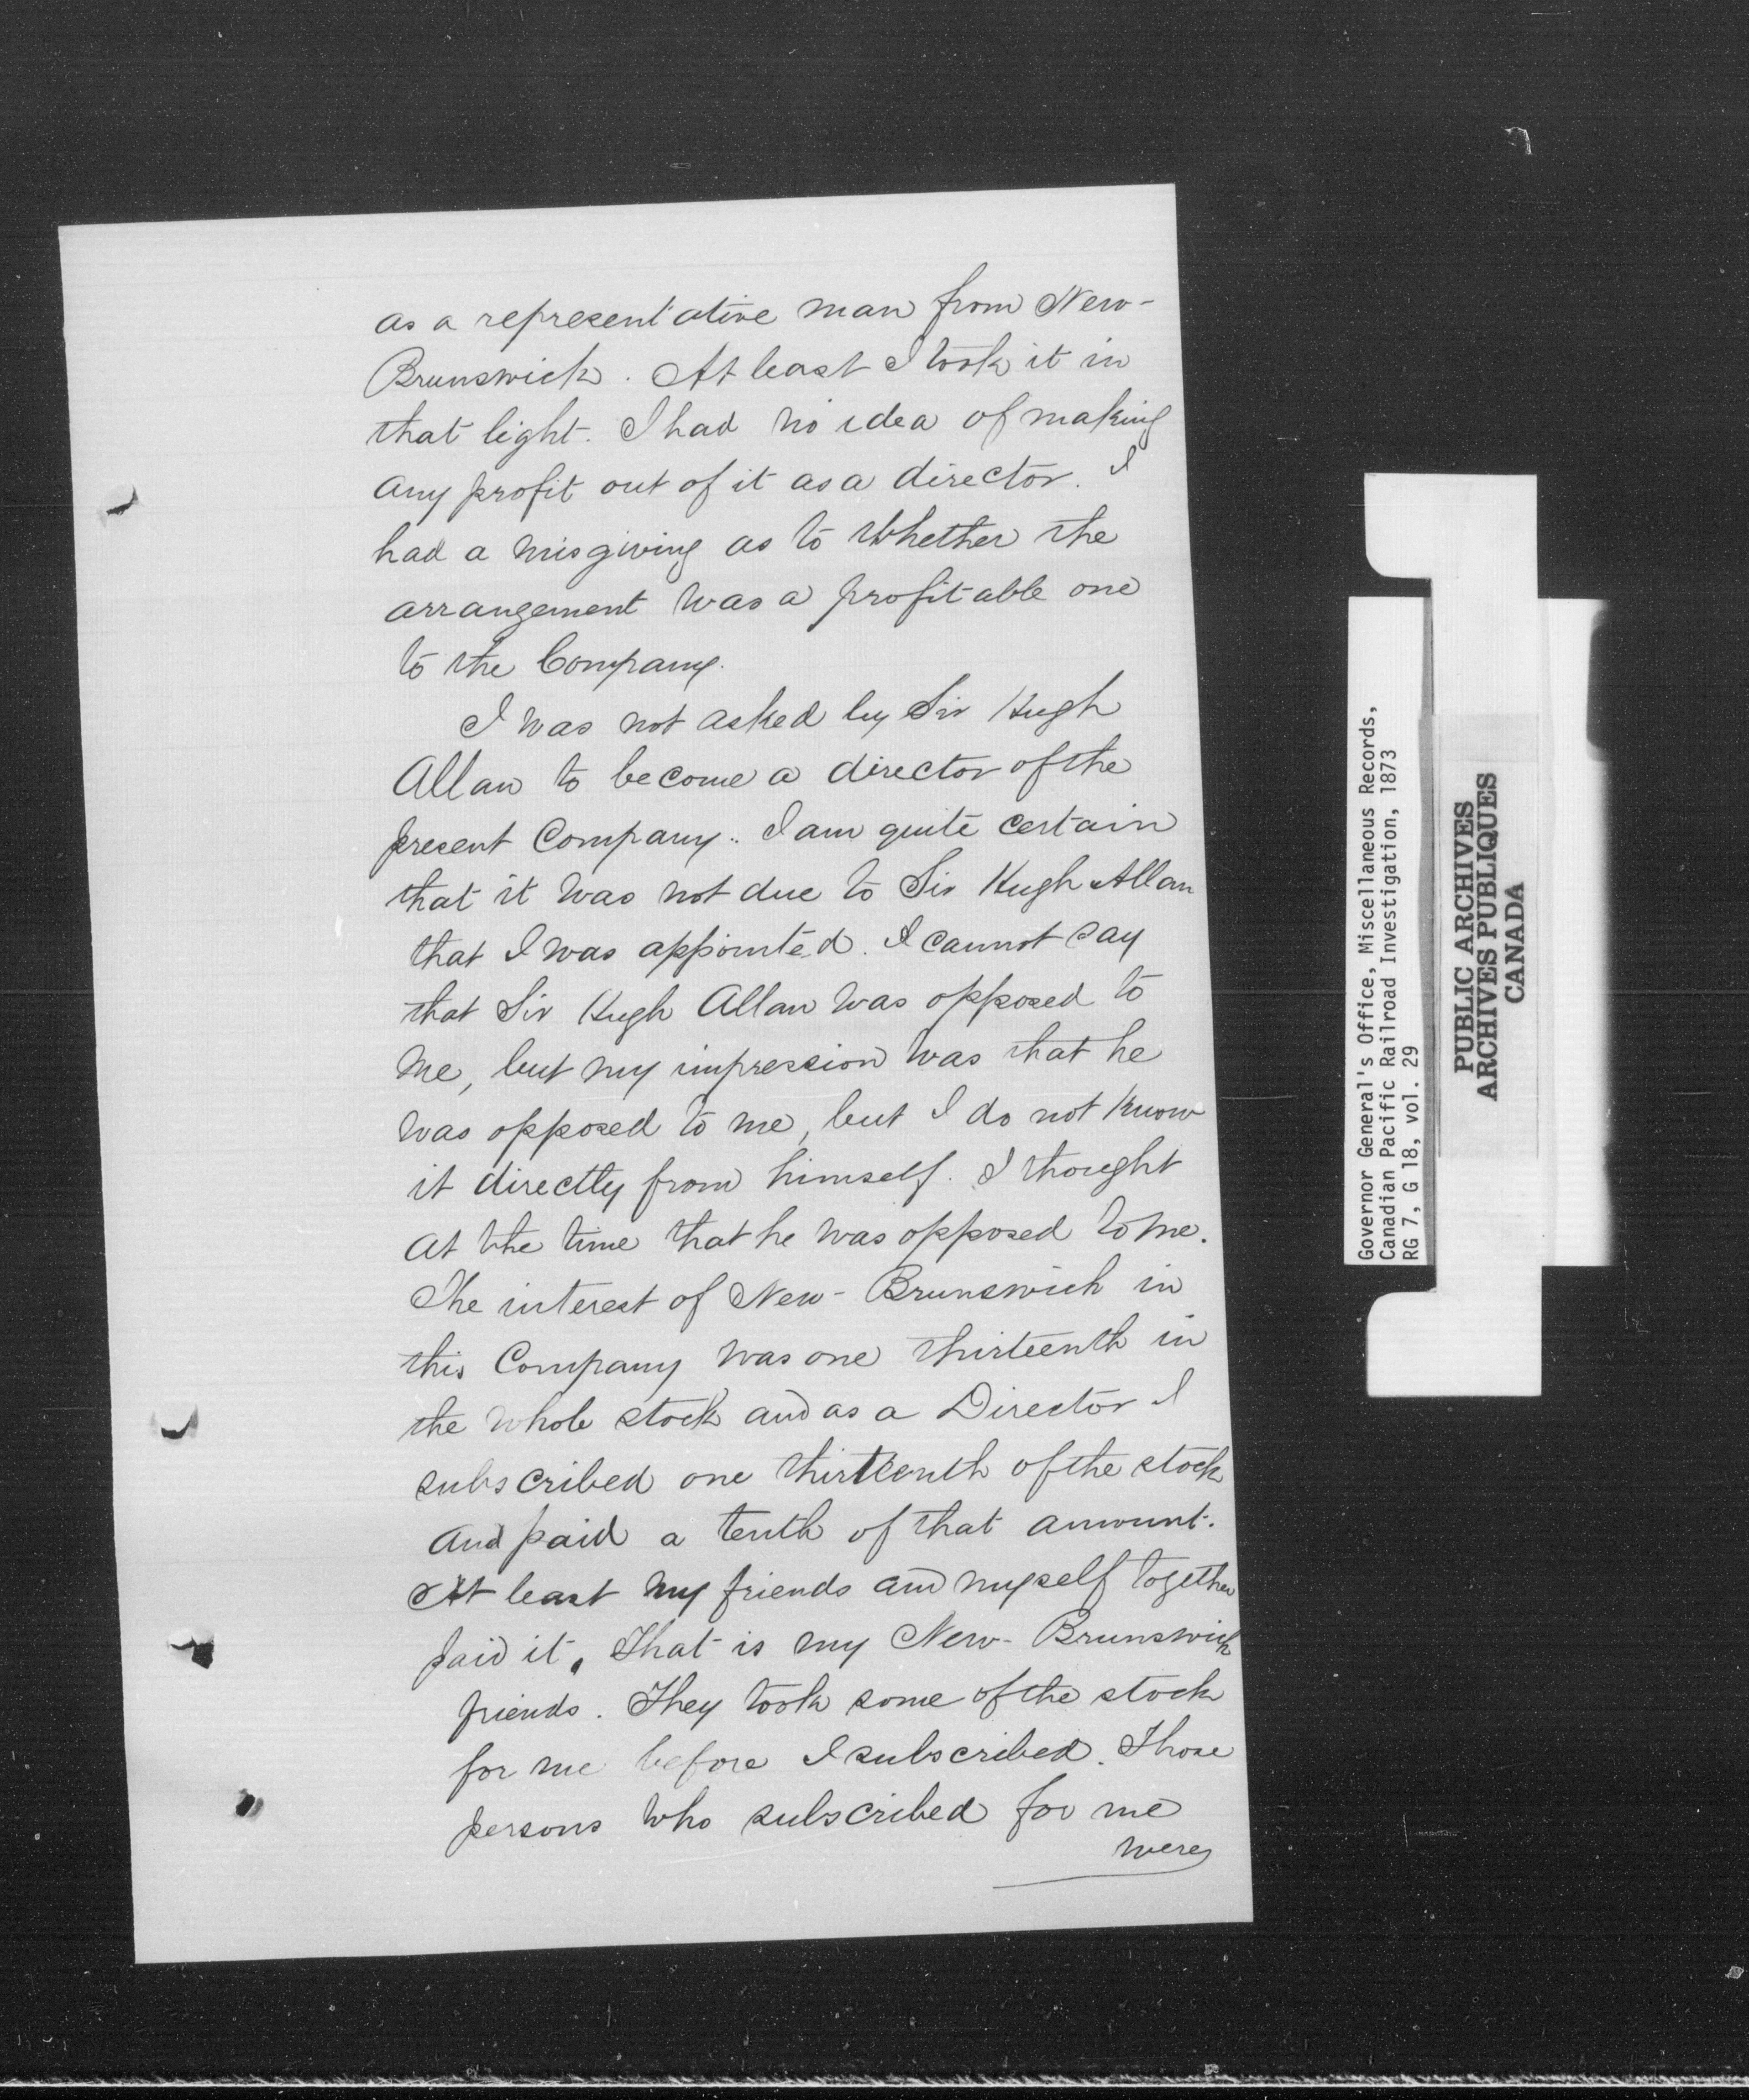 as a representative man from New-
Brunswick. At least I took it in
that light. I had no idea of making
any profit out of it as a director. I
had a misgiving as to whether the
arrangement was a profitable one
to the Company.
I was not asked by Sir Hugh
Allan to become a director of the
present Company.. I am quite certain
that it was not due to Sir Hugh Allan
that I was appointed. I cannot say
that Sir Hugh Allan was opposed to
me, but my impression was that he
was opposed to me, but I do not know
it directly from himself. I thought
at the time that he was opposed to me.
The interest of New-Brunswick in
this Company was one thirteenth in
the whole stock and as a Director I
subscribed one thirteenth of the stock
and paid a tenth of that amount.
At least my friends and myself together
paid it. That is my New-Brunswick
friends. They took some of the stock
for me before I subscribed. Those
persons who subscribed for me
were
Governor General's Office, Miscellaneous Records,
Canadian Pacific Railroad Investigation, 1873
RG 7, G 18, vol. 29
PUBLIC ARCHIVES
ARCHIVES PUBLIQUES
CANADA